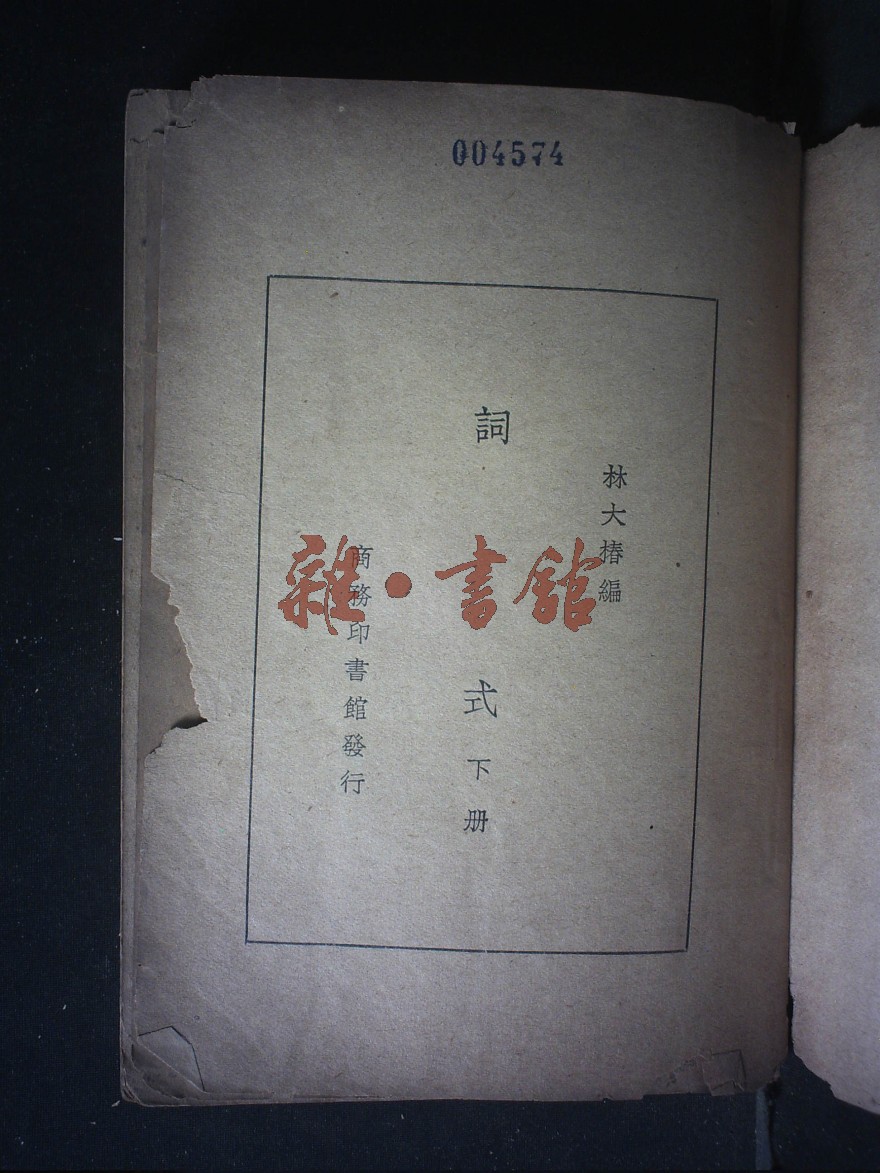 004574
林大椿編
詞式下册
商務印書館發行
雜·書館